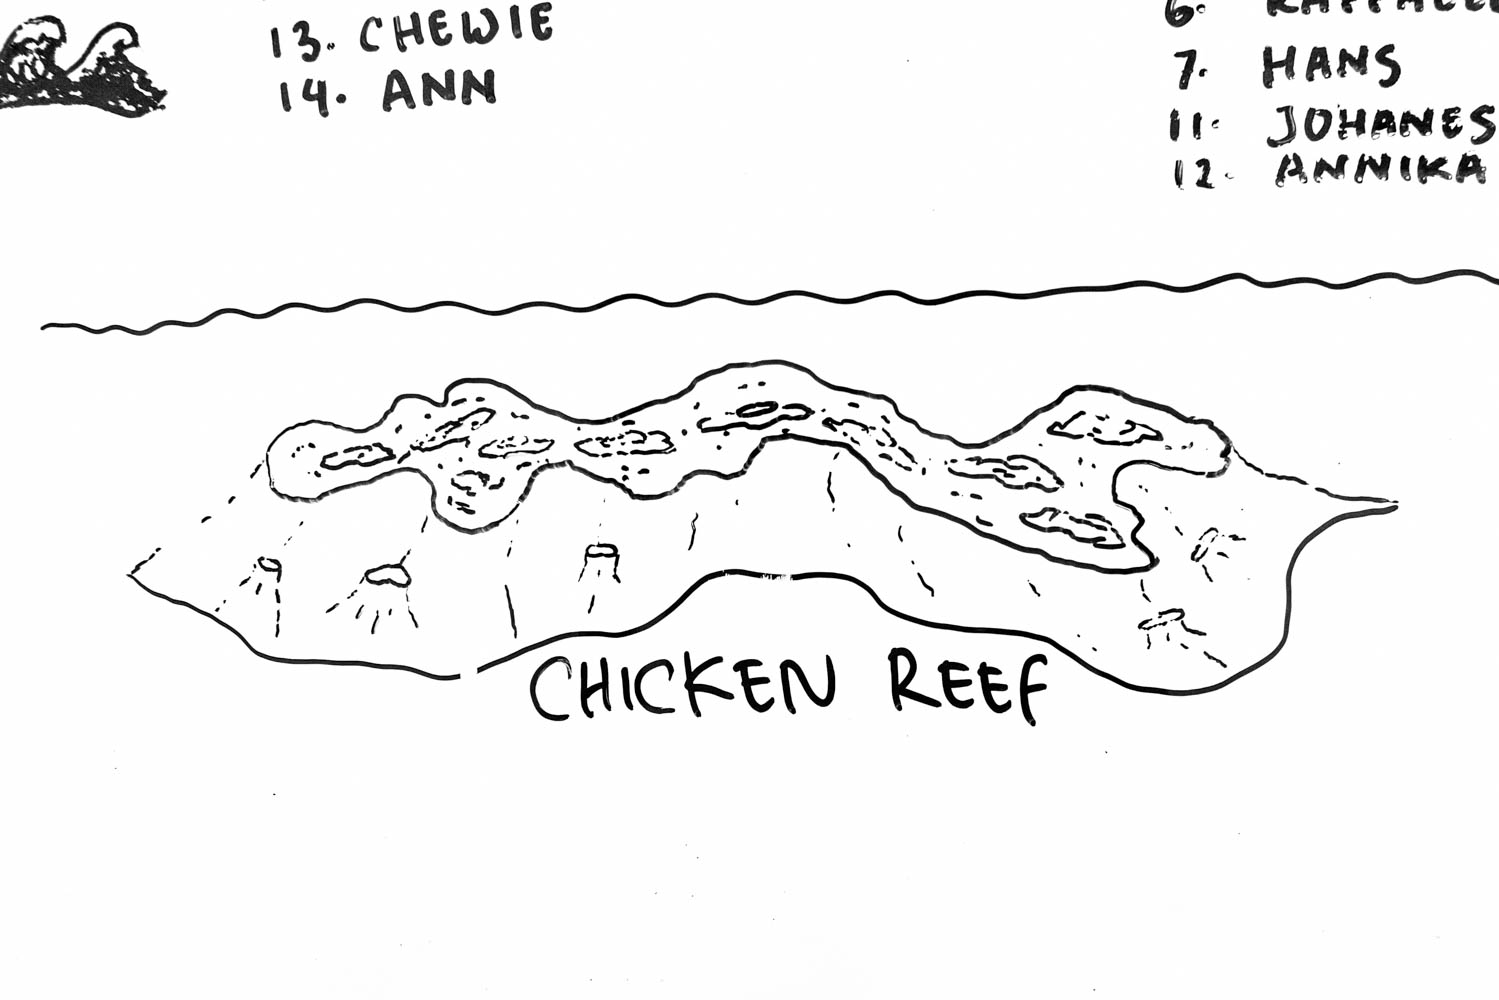 13. CHEWIE
14. ANN
6.
7. HANS
11. JOHANES
12. ANNIKA
CHICKEN REEF